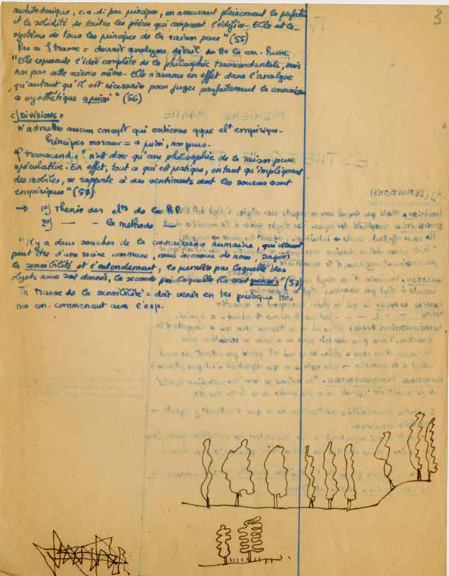 3
architectonique, c.a.d. par principes, en assurant pleinement la perfection
et la solidité de toutes les pièces qui composent l'édifice. Elle est le
système de tous les principes de la raison pure" (55)
devrait analyser détail de tte la con.
"Elle expose l'idée complète de la philosophie transcendantale, mais
non pas cette science même. Elle n'avance en effet dans l'analyse
qu'autant qu'il est nécessaire pour juger parfaitement la connaissance
synthétique a priori" (56)
c) Divisions:
n'admettre aucun concept qui contienne qque elt empirique.
Principes moraux = a priori, non purs.
transcend. "n'est donc qu'une philosophie de la raison pure
spéculative. En effet, tout ce qui est pratique, en tant qu'impliquant
des mobiles, se rapporte à des sentiments dont les sources sont
empiriques" (57)
→ 1°) Théorie des elts de la R.P.
2°) — — la méthode — —
"Il y a deux souches de la connaissance humaine, qui viennent
peut être d'une racine commune, mais inconnue de nous, savoir
la sensibilité et l'entendement, la première par laquelle des
objets nous sont donnés, la seconde par laquelle ils sont pensés" (57)
Th transc de la sensibilité = doit venir en 1er puisque tte
no con. commencent avec l'exp.